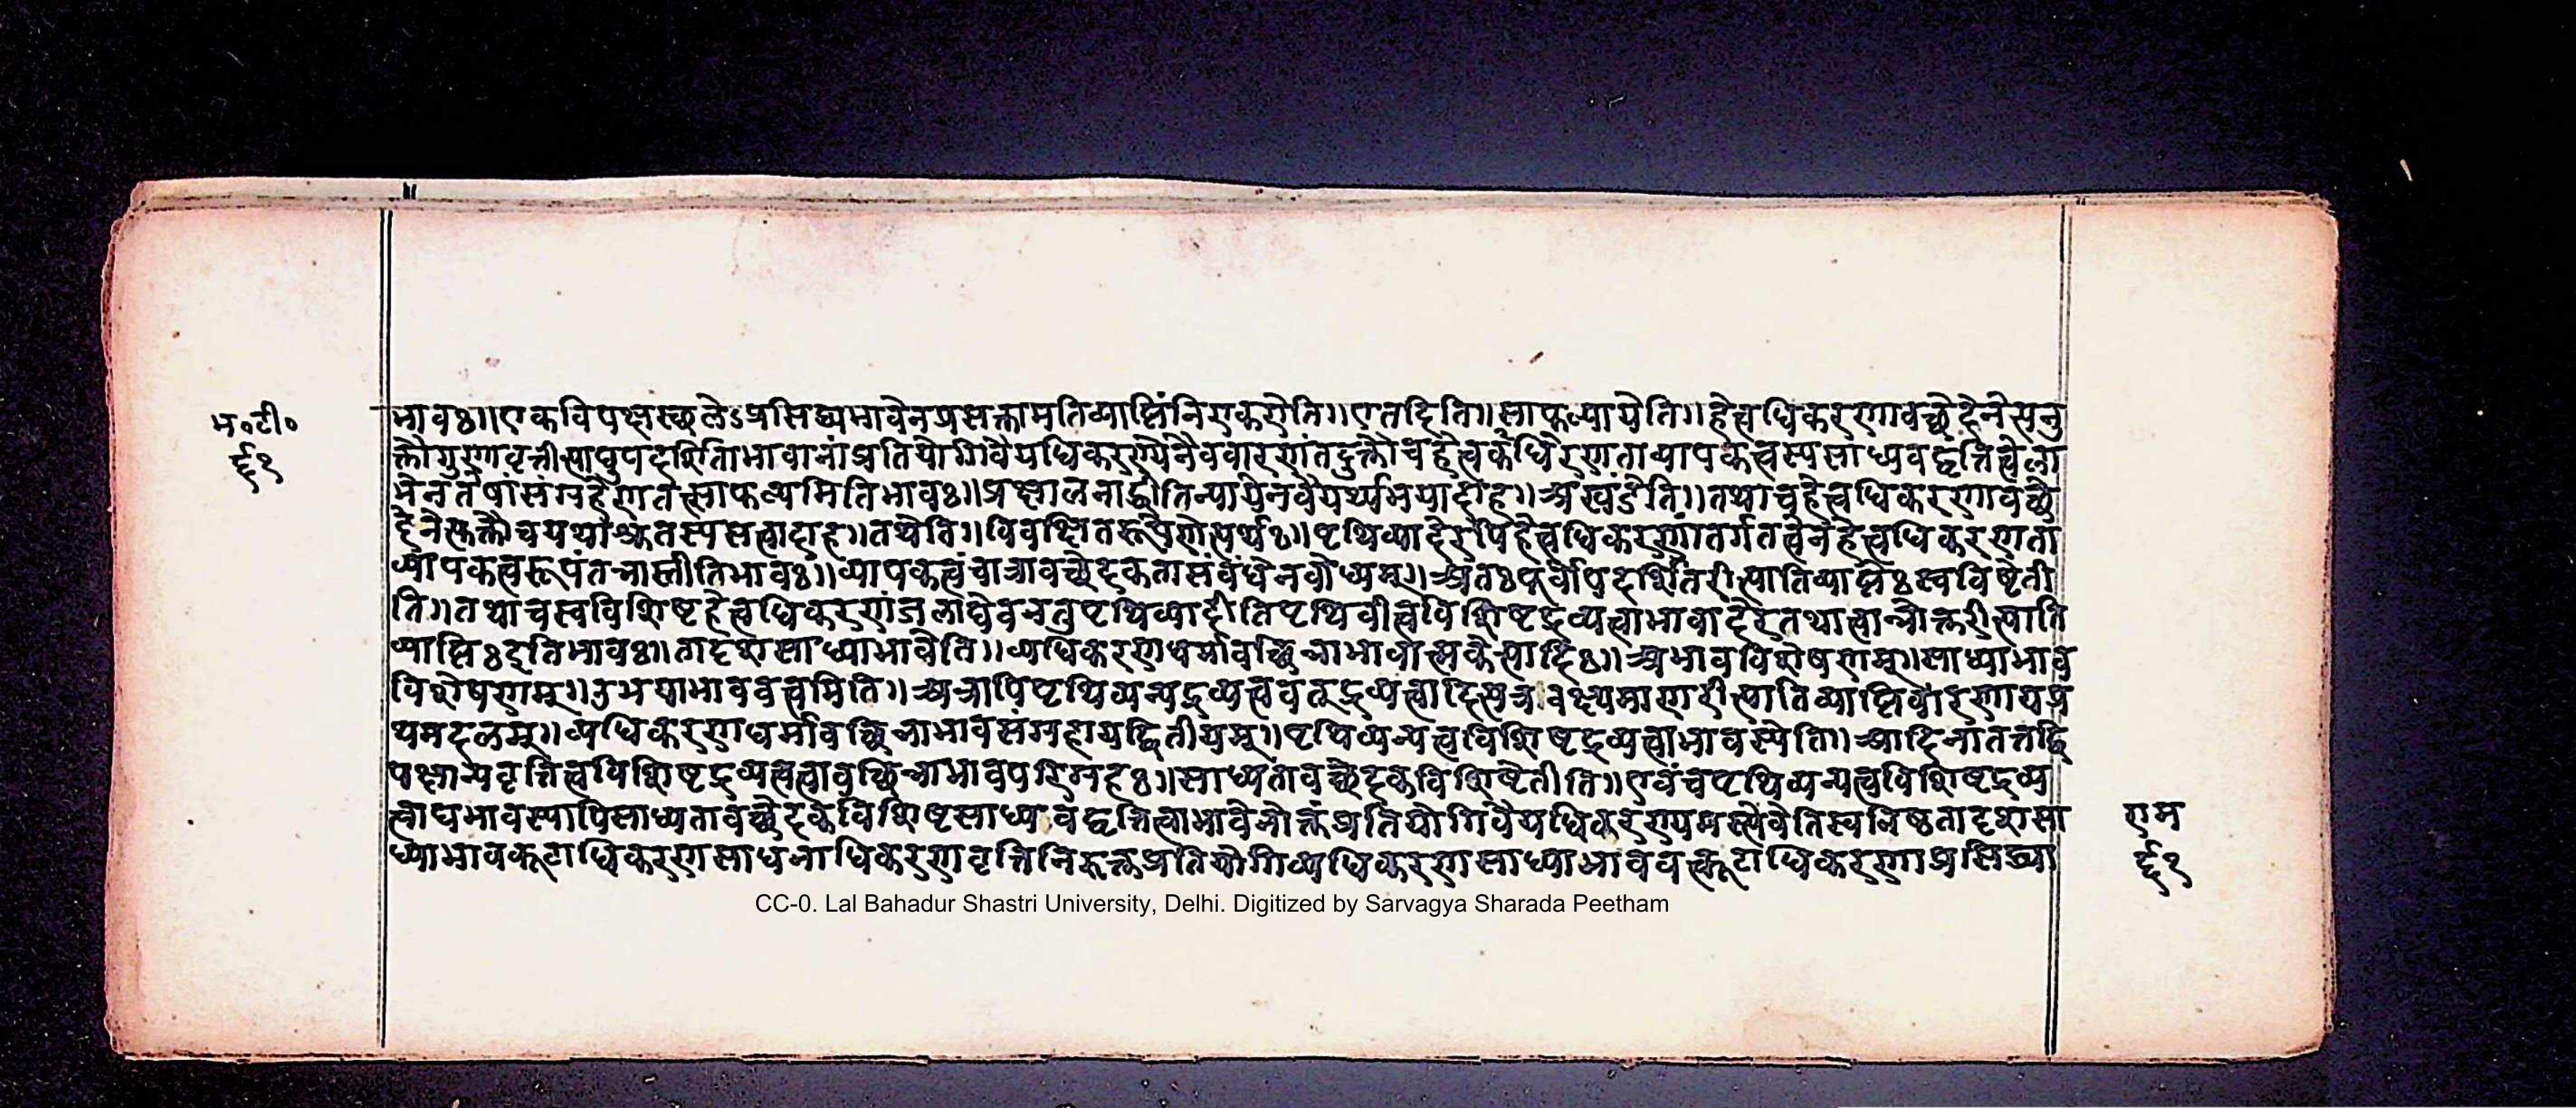 भ॰टी॰
६१
भावः॥एकविपक्षस्थलेऽप्रसिद्ध्यभावेनप्रसक्तामतिव्याप्तिंनिराकरोति॥एतदिति॥साफल्यायेति॥हेत्वधिकरणावच्छेदेनेत्यनु
क्तौगुणावृत्तीत्याद्युपदर्शिताभावानांप्रतियोगिवैयधिकरण्येनैववारणंतदुक्तौचहेत्वधिकरणताव्यापकत्वस्यसाध्यवद्वृत्तित्वेला
भेनतेषांसंग्रहेणतत्साफल्यमितिभावः॥प्रक्षालनाद्धीतिन्यायेनवैयर्थ्यभयादाह॥अखंडेति॥तथाचहेत्वधिकरणावच्छे
देनेत्युक्तौचयथाश्रुतस्यसत्वादाह॥तथेति॥विवक्षितरूपेणेत्यर्थः॥पृथिव्यादेरपिहेत्वधिकरणांतर्गतत्वेनहेत्वधिकरणता
व्यापकत्वरूपंतन्नास्तीतिभावः॥व्यापकत्वंचात्रावच्छेदकतासंबंधेनबोध्यम्॥अतःपूर्वोपदर्शितरीत्यातिव्याप्तेःस्वविष्टेती
ति॥तथाचस्वविशिष्टहेत्वधिकरणंजलाद्येवनतुपृथिव्यादीतिपृथिवीत्वविशिष्टद्रव्यत्वाभावादेरतथात्वान्नोक्तरीत्याति
व्याप्तिःइतिभावः॥तादृशसाध्याभावेति॥व्यधिकरणधर्मावच्छिन्नाभावात्मकेत्यादिः॥अभावविशेषणम्॥साध्याभाव
विशेषणम्॥उभयाभाववत्त्वमिति॥अत्रापिपृथिव्यन्यद्रव्यत्ववत्द्रव्यत्वादित्यत्रवक्ष्यमाणरीत्यातिव्याप्तिवारणायप्र
थमदलम्॥व्यधिकरणधर्मावच्छिन्नाभावसंग्रहायद्वितीयम्॥पृथिव्यन्यत्वविशिष्टद्रव्यत्वाभावस्येति॥आदिनातत्तद्वि
पक्षान्यवृत्तित्वविशिष्टद्रव्यत्वत्वावच्छिन्नाभावपरिग्रहः॥साध्यतावच्छेदकविशिष्टेतीति॥एवंचपृथिव्यन्यत्वविशिष्टद्रव्य
त्वाद्यभावस्यापिसाध्यतावच्छेदकविशिष्टसाध्यवद्वृत्तित्वाभावेनोक्तंप्रतियोगिवैयधिकरण्यमस्त्येवेतिस्वनिष्ठतादृशसा
ध्याभावकूटाधिकरणसाधनाधिकरणवृत्तिनिरुक्तप्रतियोगिव्यधिकरणसाध्याभाववत्कूटाधिकरणाप्रसिद्ध्या
राम
६१
CC-0. Lal Bahadur Shastri University, Delhi. Digitized by Sarvagya Sharada Peetham